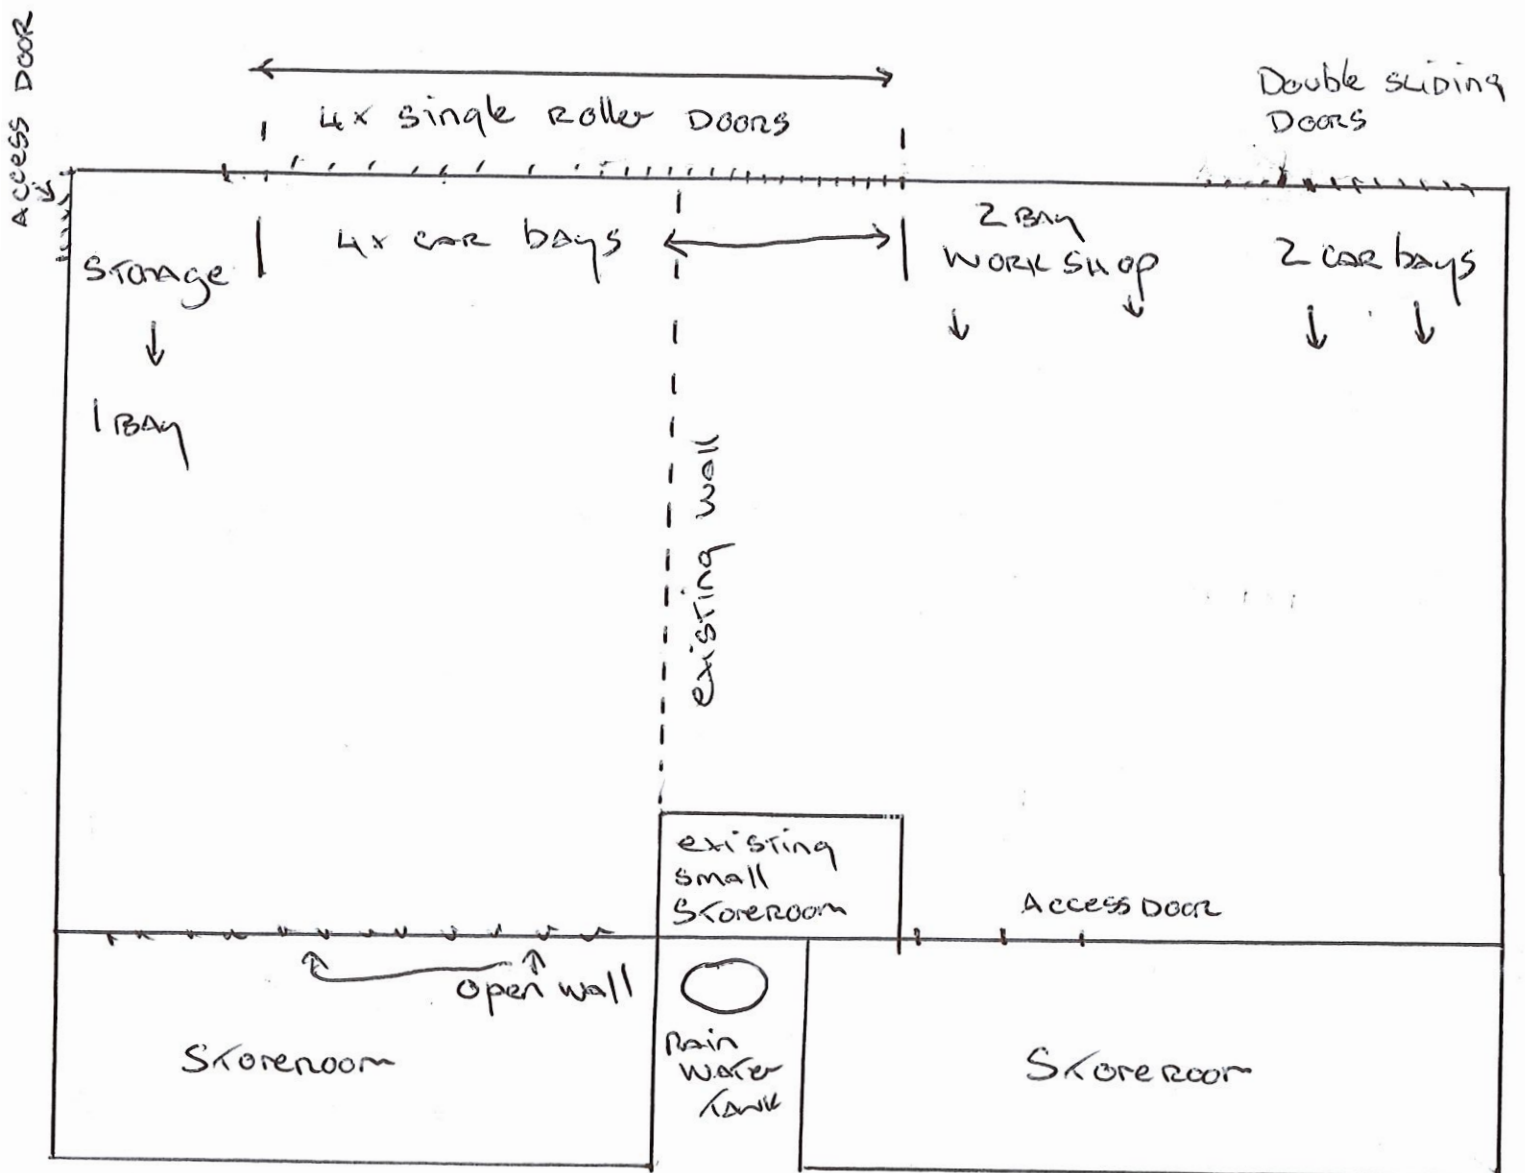 ACCESS DOOR
4x single Roller DOORS
Double SLIDING
DOORS
Storage
4x CAR bays
2 BAY
WORKSHOP
2 CAR bays
1 BAY
existing wall
existing
small
Storeroom
ACCESS DOOR
open wall
Storeroom
Rain
Water
Tank
Storeroom